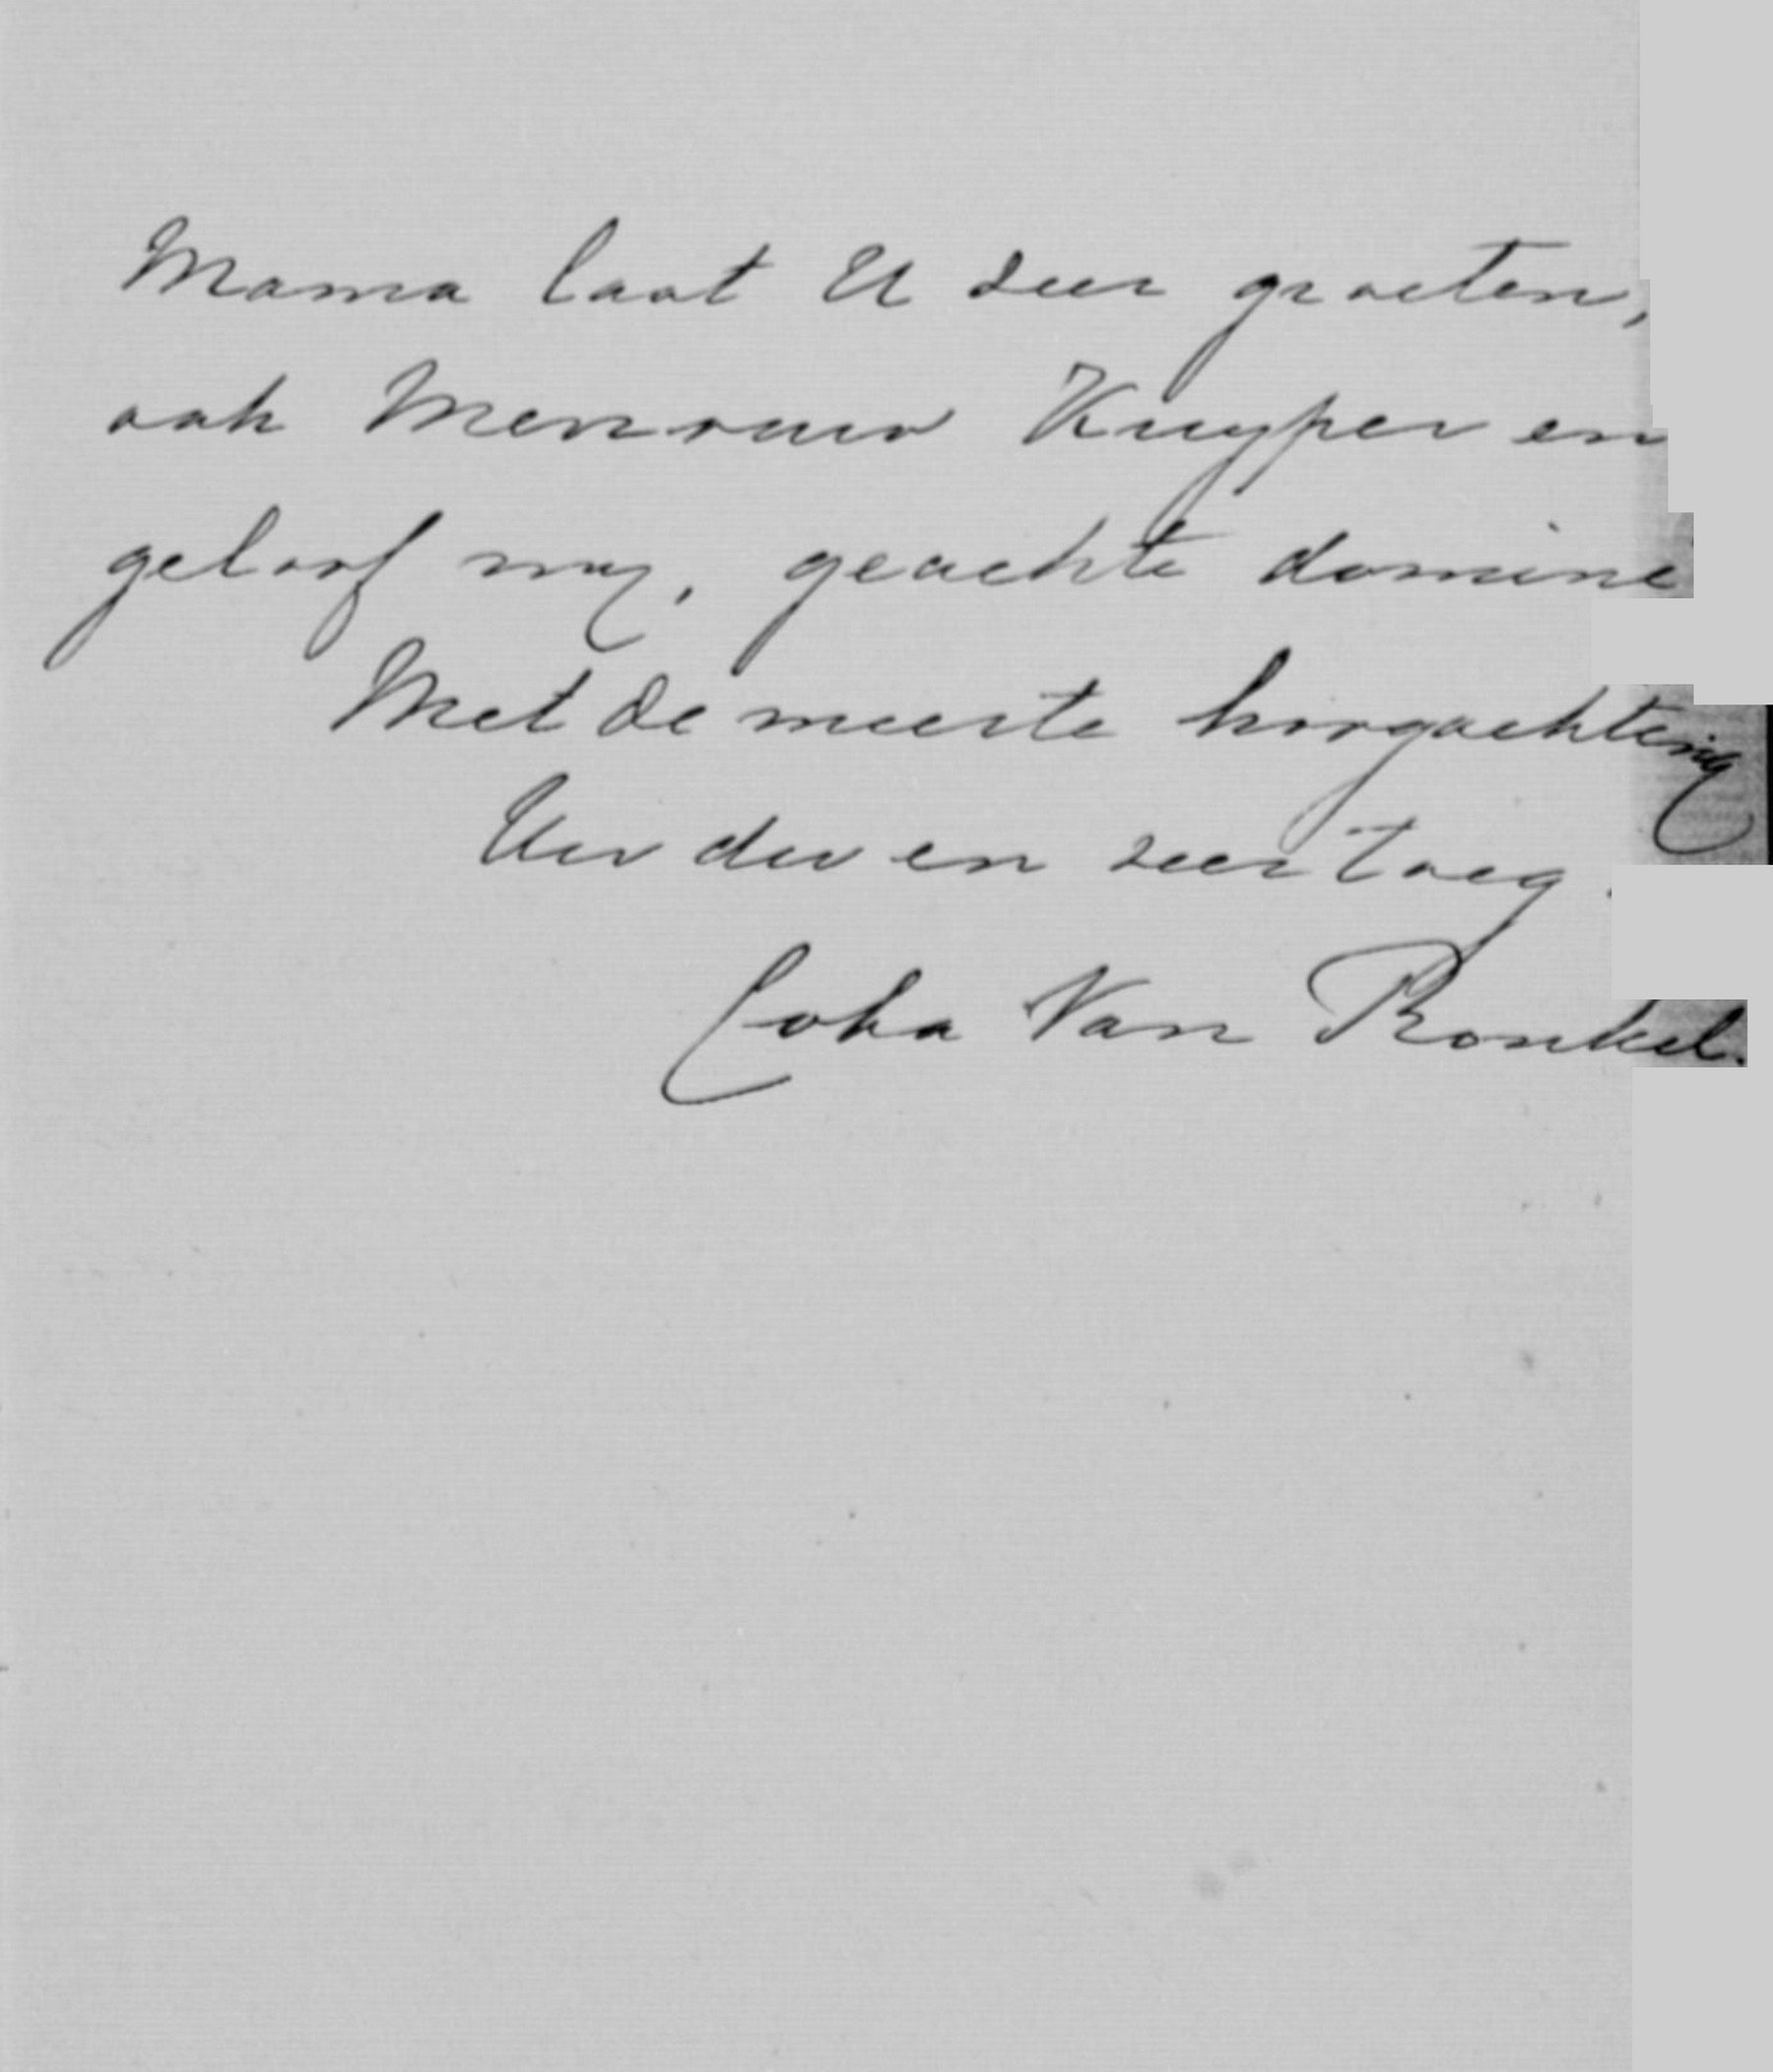 Mama laat U zeer groeten,
ook Mevrouw Kuyper en
geloof my, geachte domine
Met de meeste hoogachting
Uw dw en zeer toeg.
Coba Van Ronkel.